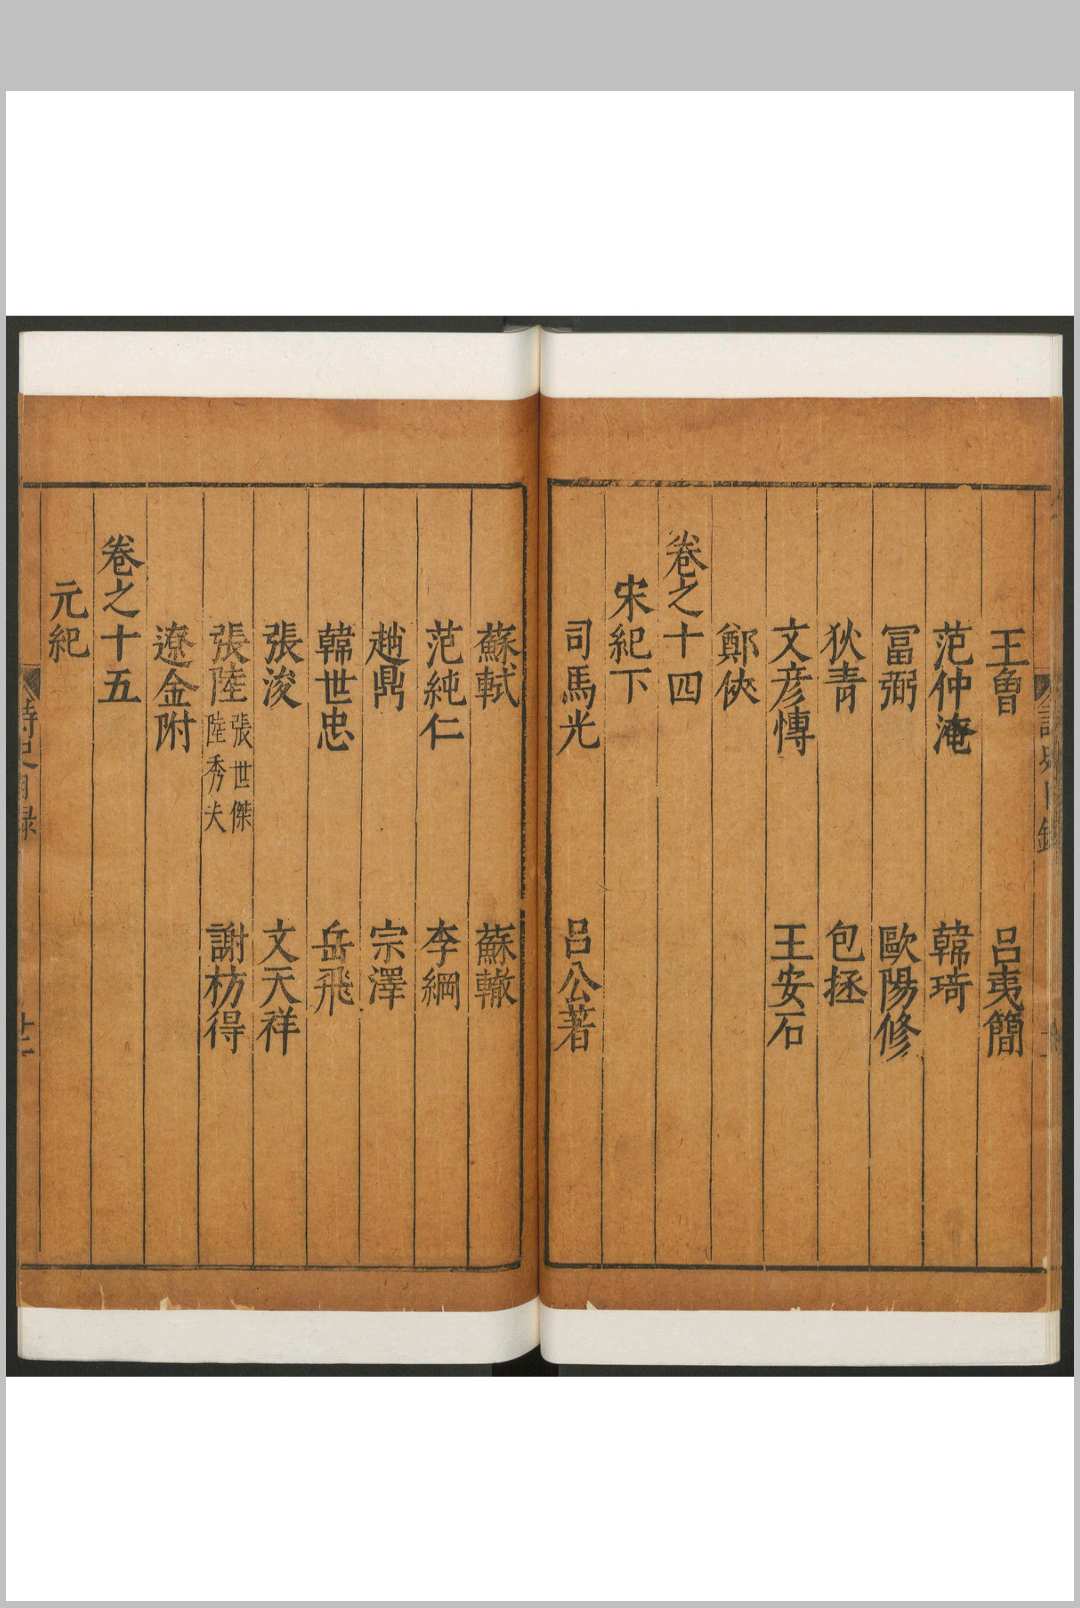 王曾 呂夷簡
范仲淹 韓琦
富弼 歐陽修
狄青 包拯
文彥博 王安石
鄭俠
卷之十四
宋紀下
司馬光 呂公著
蘇軾 蘇轍
范純仁 李綱
趙鼎 宗澤
韓世忠 岳飛
張浚 文天祥
張陸 張世傑 陸秀夫 謝枋得
遼金附
卷之十五
元紀
詩史目録